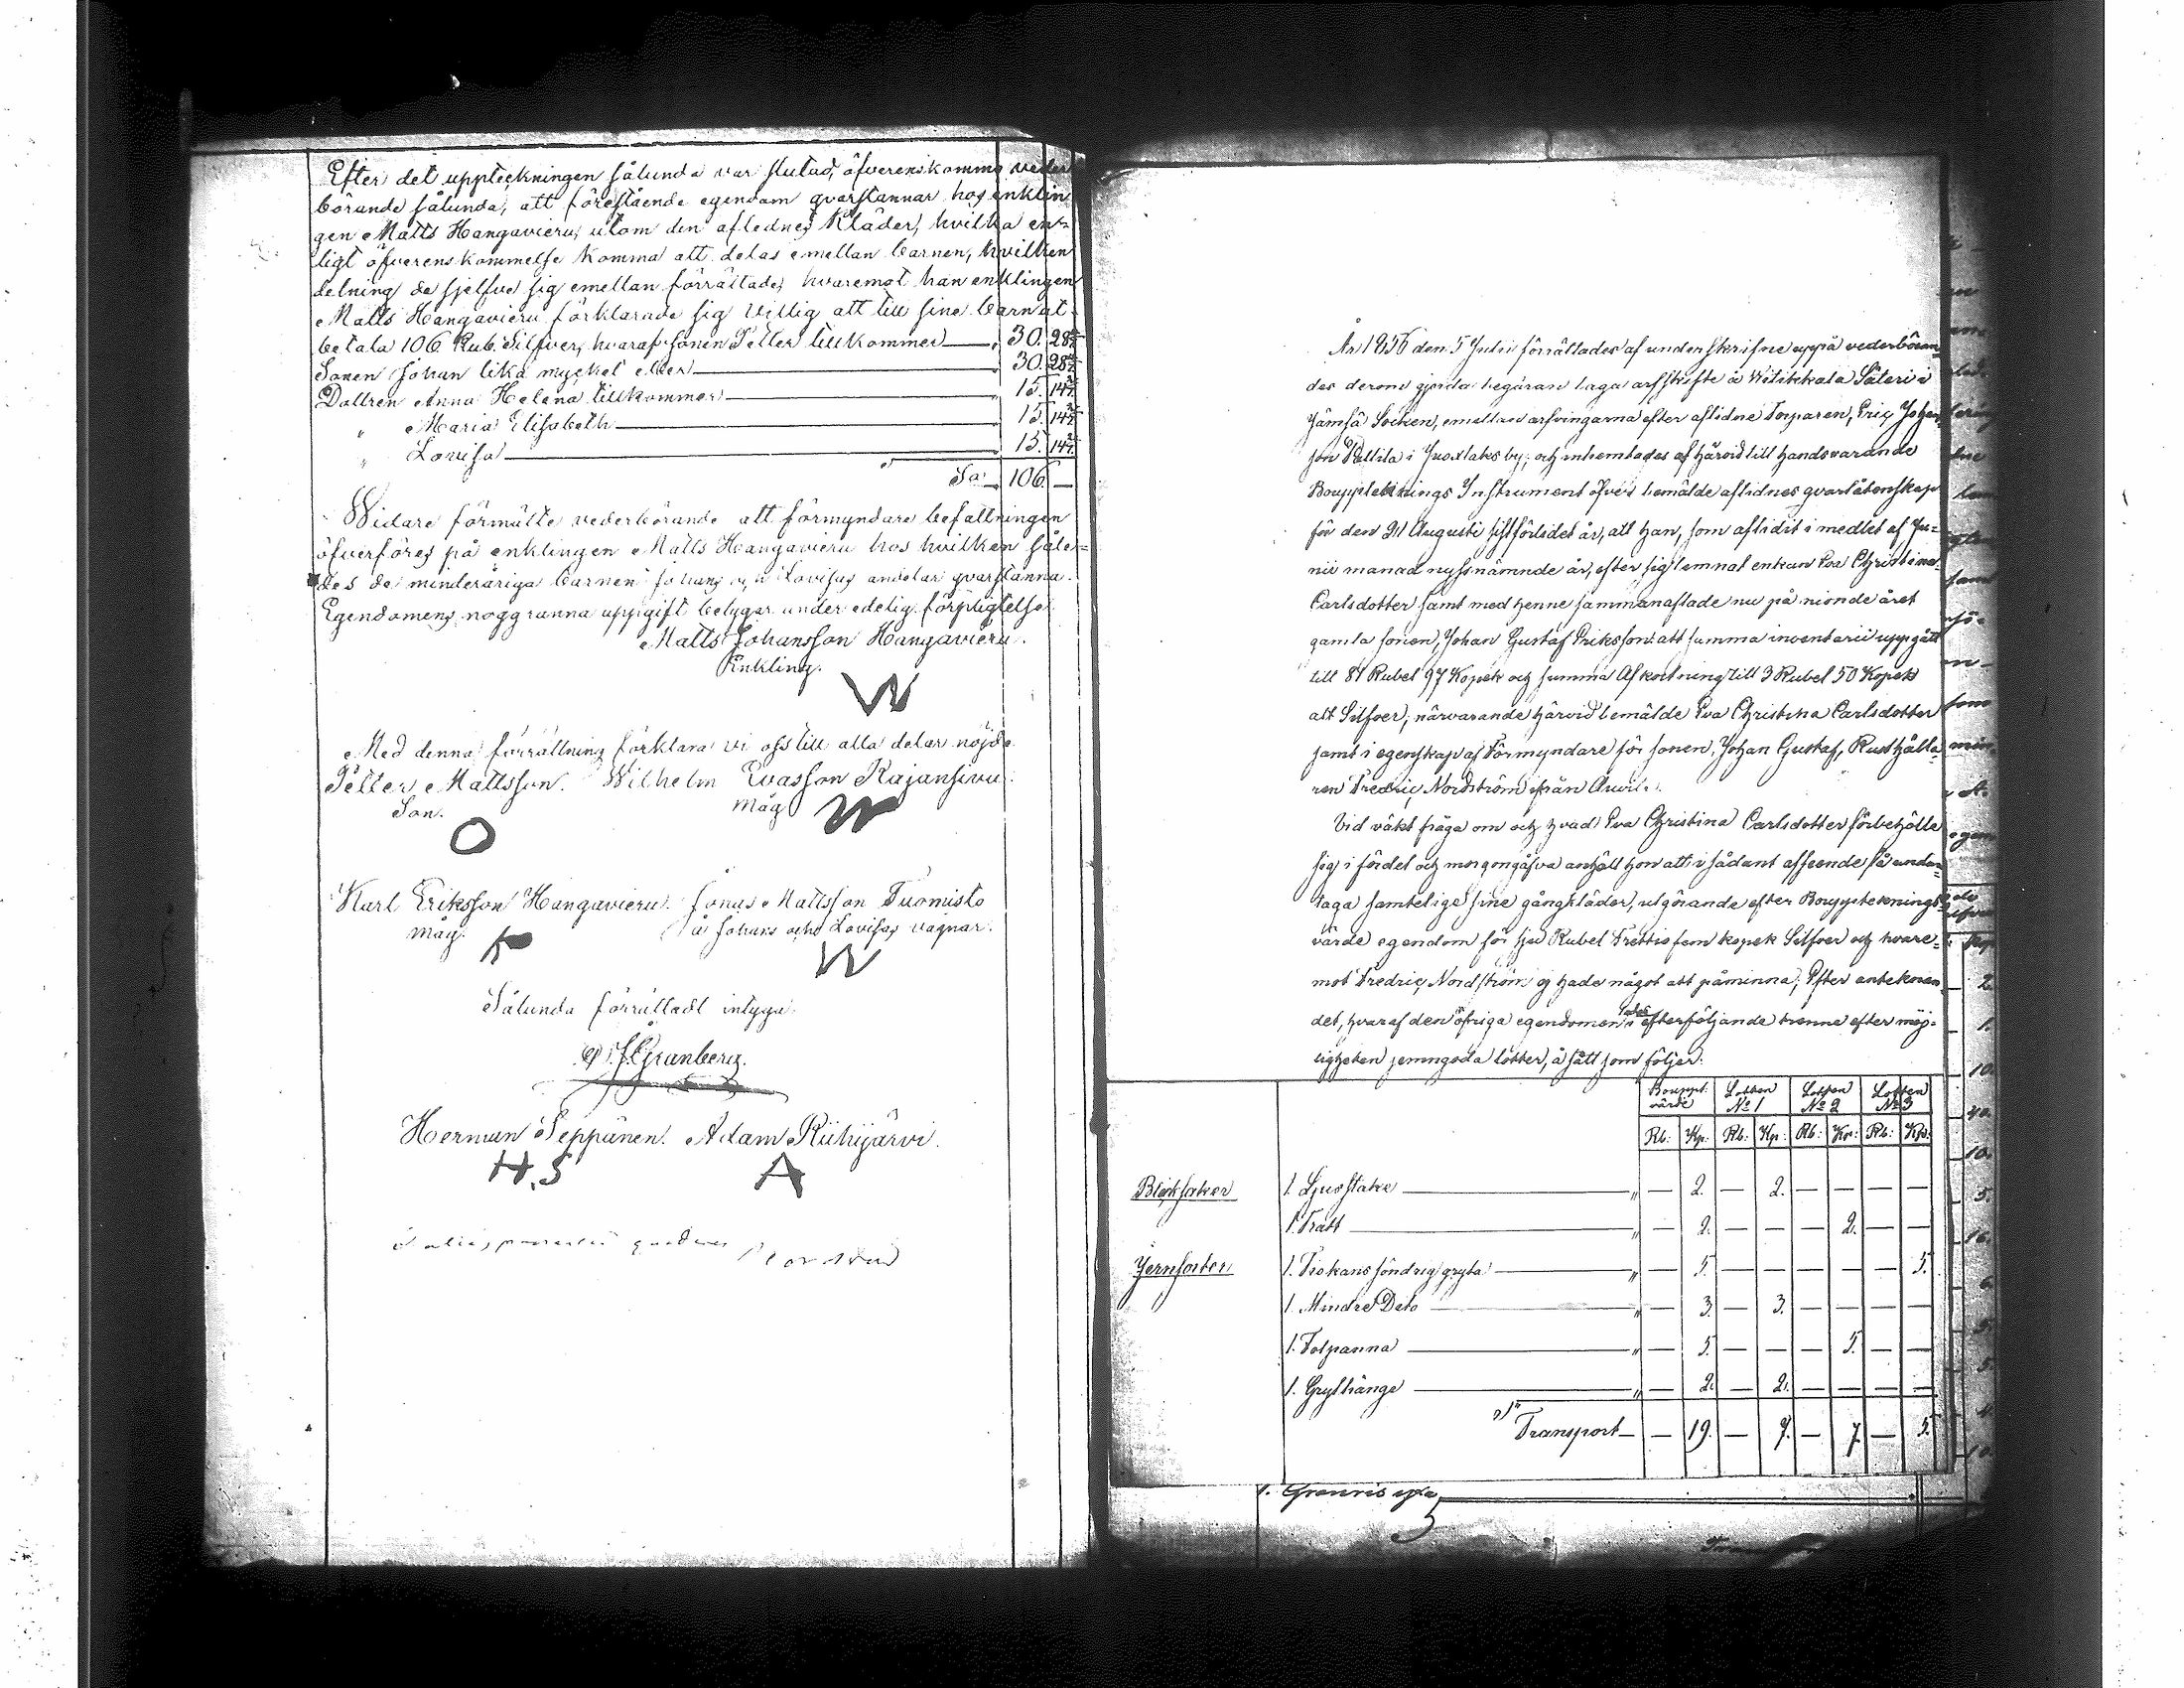 Efter det uppteckningen sålunda var slutad, öfverenskommo veder
börande sålunda, att förestående egendom qvarstannar hos enklin
gen Matts Hangavieru, utom den aflednes Kläder, hvilka en-
ligt öfverenskommelse komma att delas emellan barnen, hvilken
delning de sjelfve sig emellan förrättade, hvaremot han enklingen
Matts Hangavieru förklarade sig villig att till sine barn ut
betala 106 Rub. Silfver, hvaraf sonen Petter tillkommer 30. 28 4/7
Sonen Johan lika mycket eller 30. 28 4/7
Dottren Anna Helena tillkommer 15. 14 2/7
" Maria Elisabeth 15. 14 2/7
" Lovisa 15. 14 2/7
Sa 106. —
Widare förmälte vederbörande att förmyndare befattningen
öfverföres på enklingen Matts Hangavieru hos hvilken såle-
des de minderåriga barnen Johans och Lovisas andelar qvarstanna.
Egendomens noggranna uppgift betygar under edelig förpligtelse
Matts Johansson Hangavieru.
Enkling.
Med denna förrättning förklara vi oss till alla delar nöjde
Petter Mattsson. Wilhelm Evasson Rajansivu.
Son. Måg
Karl Eriksson Hangavieru. Jonas Mattsson Tuomisto
Måg. å Johans och Lovisas vägnar.
Sålunda förrättadt intyga.
J. Granberg.
Herman Seppänen. Adam Riihijärvi.
H.S A
År 1856 den 5 Julii förrättades af underskrifne uppå vederböran-
des derom gjorda begäran laga arfskifte å Witikkala Säteri i
Jämsä Socken, emellan arfvingarna efter aflidne Torparen, Eric Johans-
son Pältila i Juoxlaks by; och inhemtades af härvid till handsvarande
Boupptecknings Instrument öfver bemälde aflidnes qvarlåtenskap
för den 21 Augusti sistförlidet år, att han, som aflidit i medlet af Ju-
nii manad nyssnämnde år, efter sig lemnat enkan Eva Christina
Carlsdotter samt med henne sammanaflade nu på nionde året
gamla sonen, Johan Gustaf Eriksson: att summa inventarii uppgått
till 81 Rubel 97 Kopek och summa Afkortning till 3 Rubel 50 Kopek
alt Silfver; närvarande härvid bemälde Eva Christina Carlsdotter
samt i egenskap af Förmyndare för sonen, Johan Gustaf, Rusthålla-
ren Fredric Nordström från
Vid väkt fråga om och hvad Eva Christina Carlsdotter förbehölle
sig i fördel och morgongåfva anhöll hon att i sådant afseende få undan-
taga samtelige sine gångkläder, utgörande efter Bouppteknings-
värde egendom för sju Rubel Trettiofem kopek Silfver och hvare-
mot Fredric Nordström ej hade något att påminna; Efter anteknan-
det, hvaraf den öfriga egendomen i efterföljande trenne efter möj-
ligheten jemngoda lotter, å sätt som följer:
Bouppt. värde Lotten No 1 Lotten No 2 Lotten No 3
Rb: Kp: Rb: Kp: Rb: Kp: Rb: Kp:
Bleksaker 1. Ljusstake " — 2. — 2. — — — —
1. Tratt " — 2. — — — 2. — —
Jernsaker 1. Trekans söndrig gryta " — 5. — — — — — 5.
1. Mindre Dito " — 3. — 3. — — — —
1. Fotpanna " — 5. — — — 5. — —
1. Grythänge " — 2. — 2. — — — —
Transport — 19. — 7. — 7. — 5.